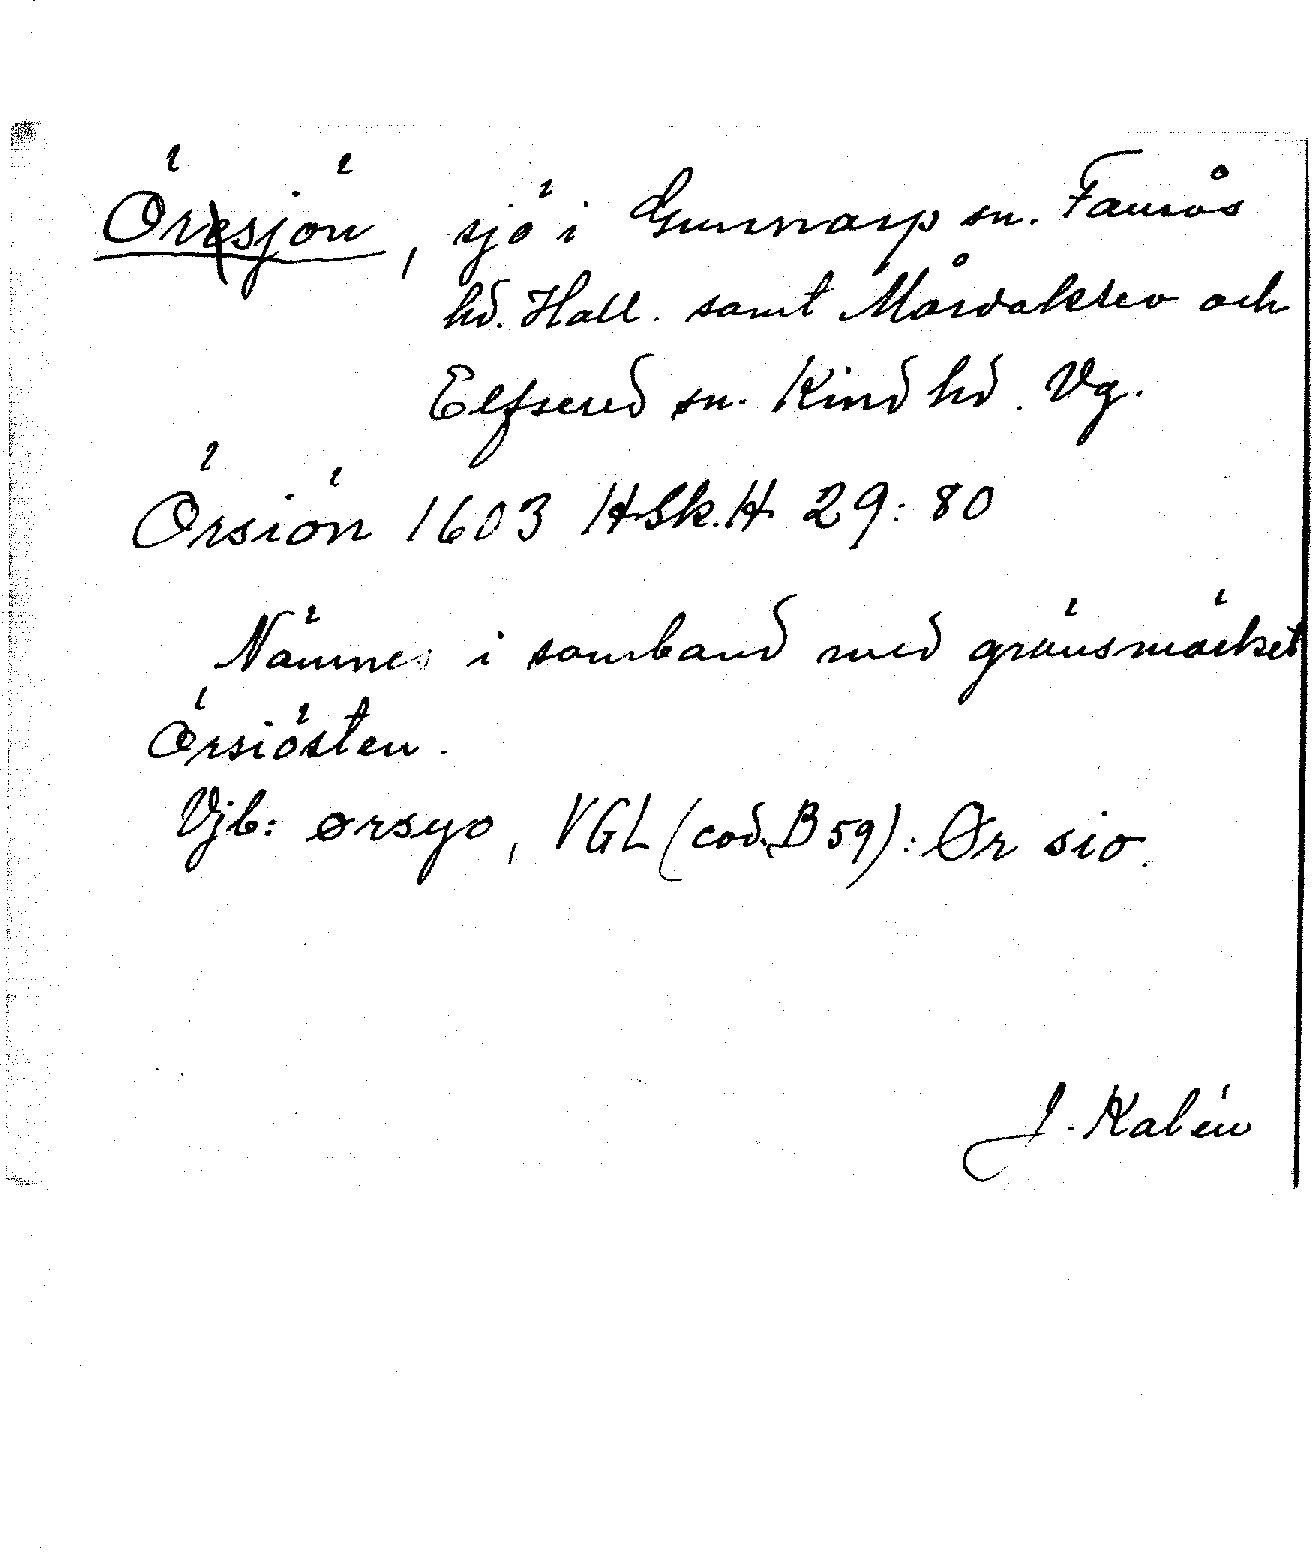 Örsjön, sjö i Gunnarp sn. Faurås
hd. Hall. samt Mårdaklev och
Elfsered sn. Kind hd. Vg.
Örsiön 1603 HSk.H 29:80
Nämnes i samband med gränsmärket
Örsiösten.
Vjb: ørsyo, VGL (cod. B 59): Ør sio.
J. Kalén